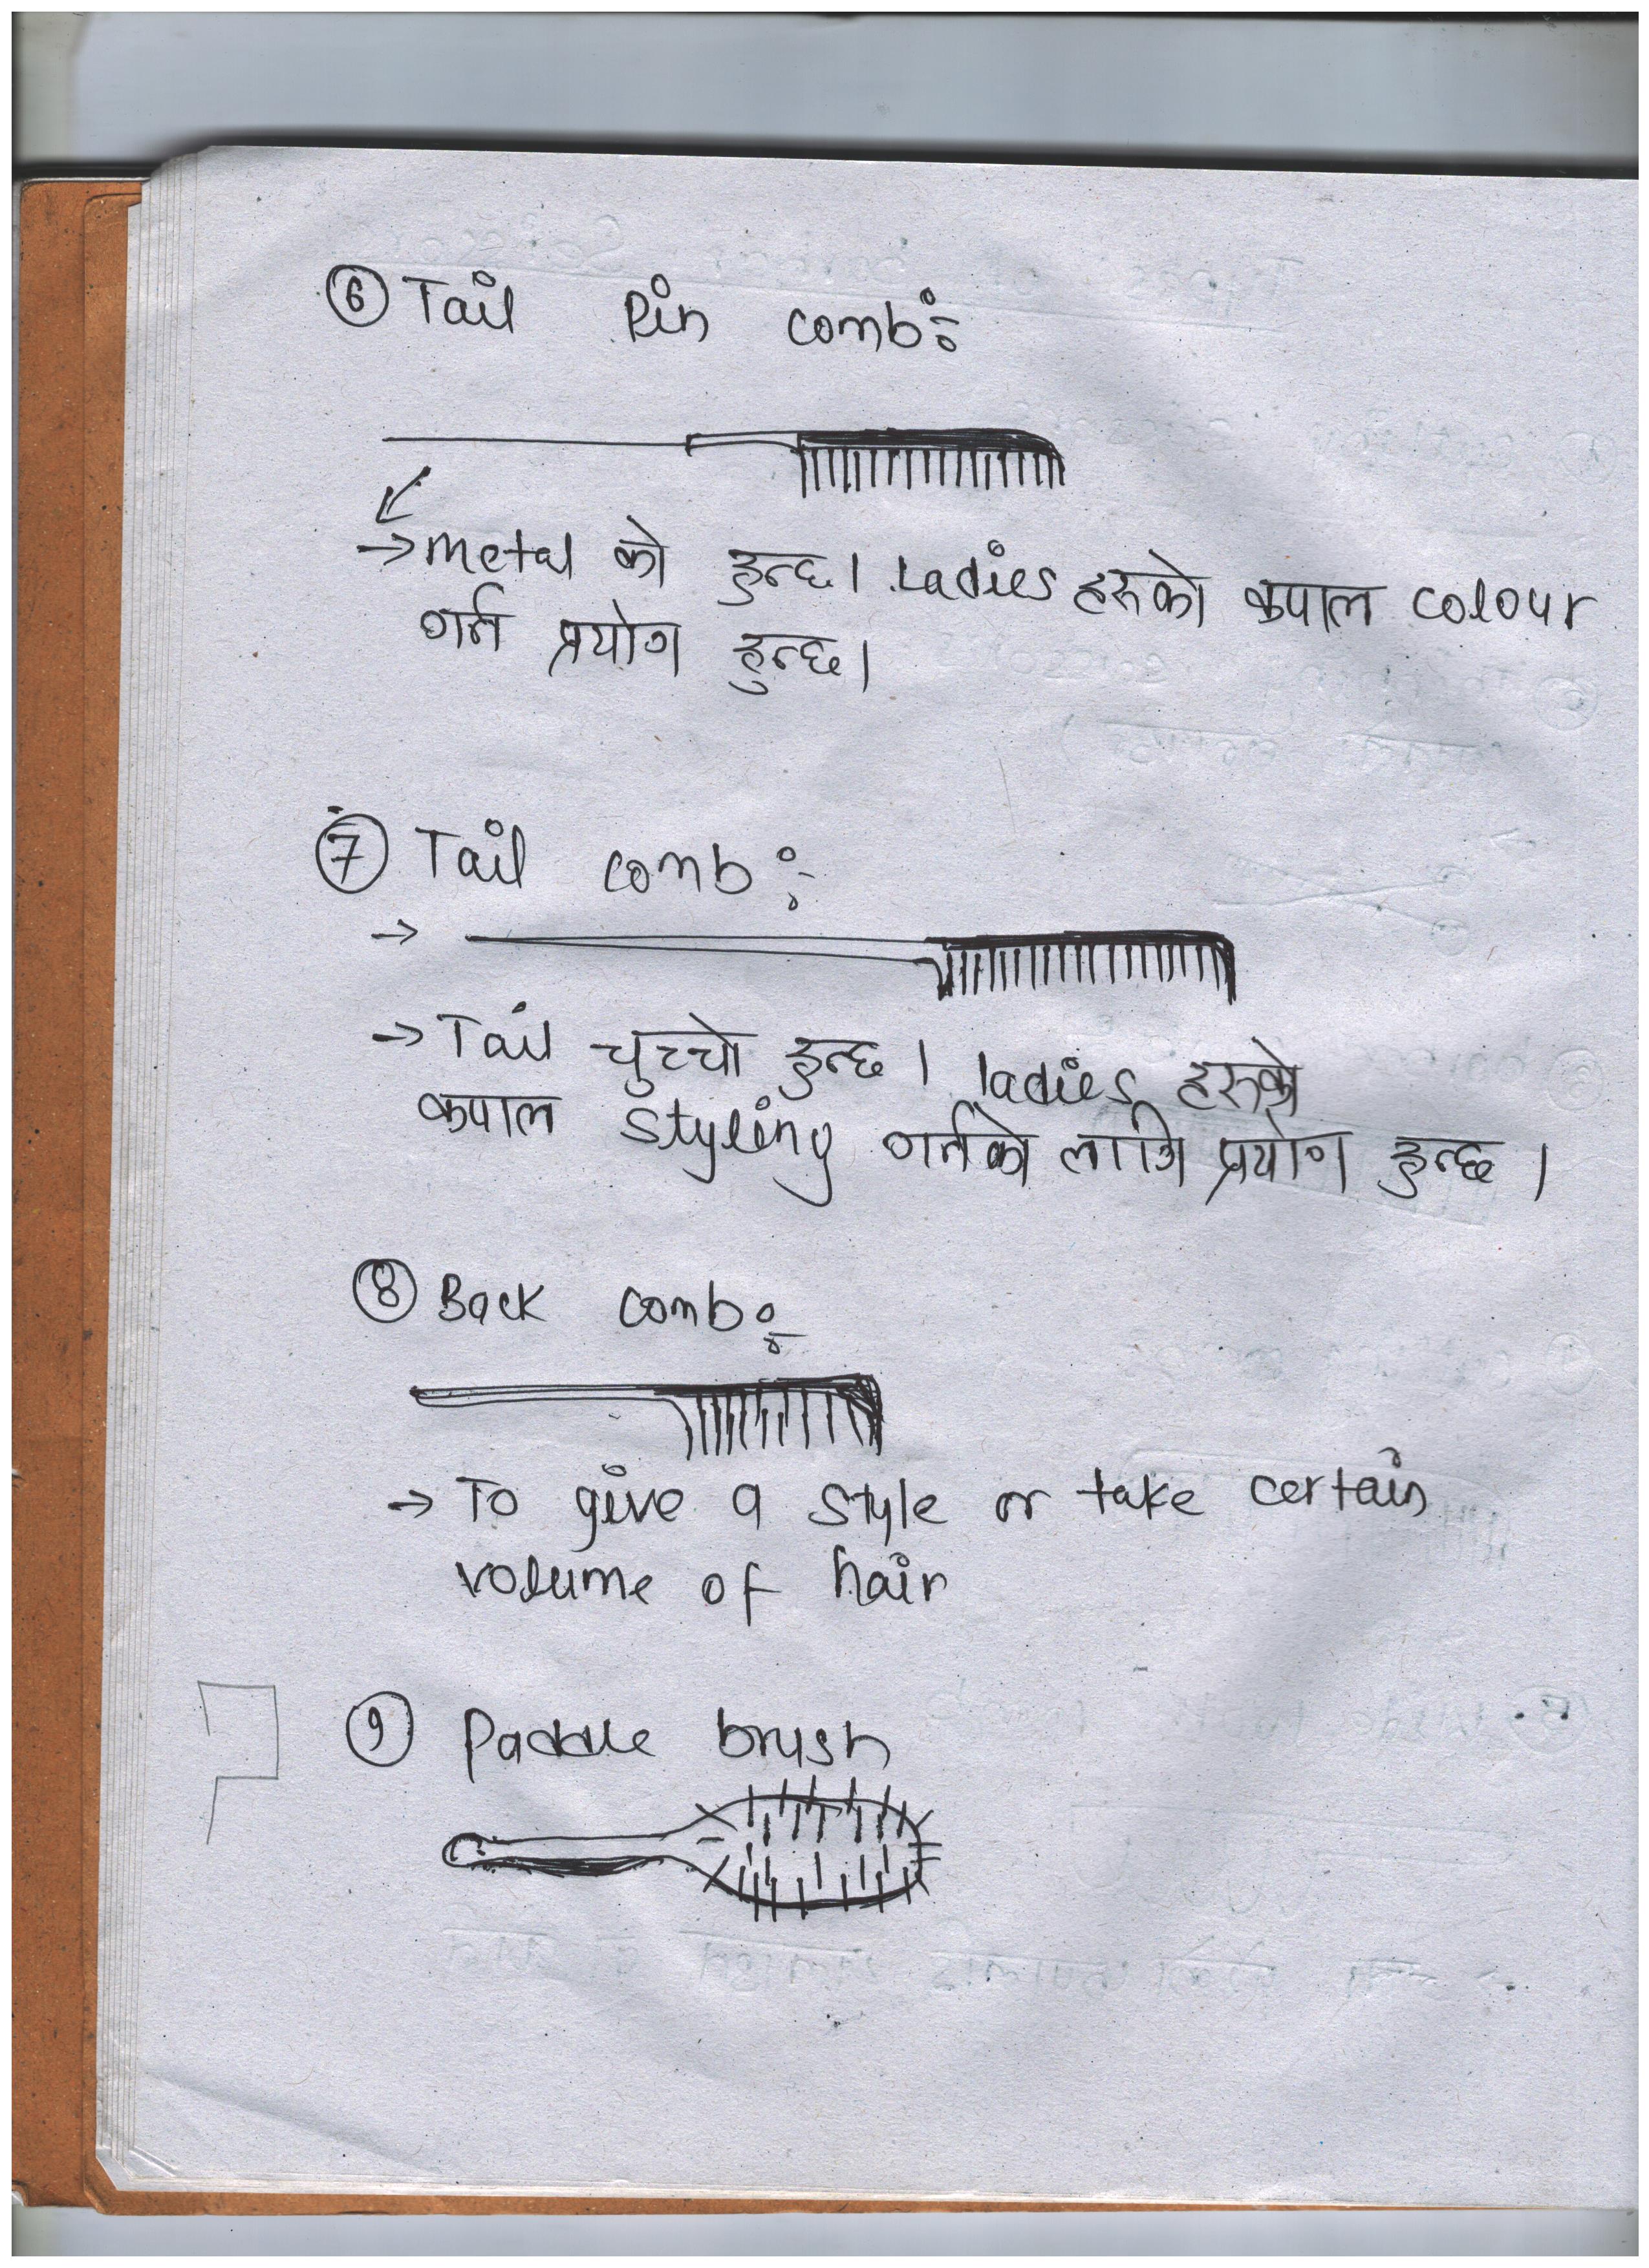 ⑥ Tail Pin comb:-
→ metal को हुन्छ। Ladies हरुको कपाल colour
गर्न प्रयोग हुन्छ।
⑦ Tail comb:-
→
→ Tail चुच्चो हुन्छ। ladies हरुको
कपाल styling गर्नको लागि प्रयोग हुन्छ।
⑧ Back comb:-
→ To give a style or take certain
volume of hair
⑨ Paddle brush